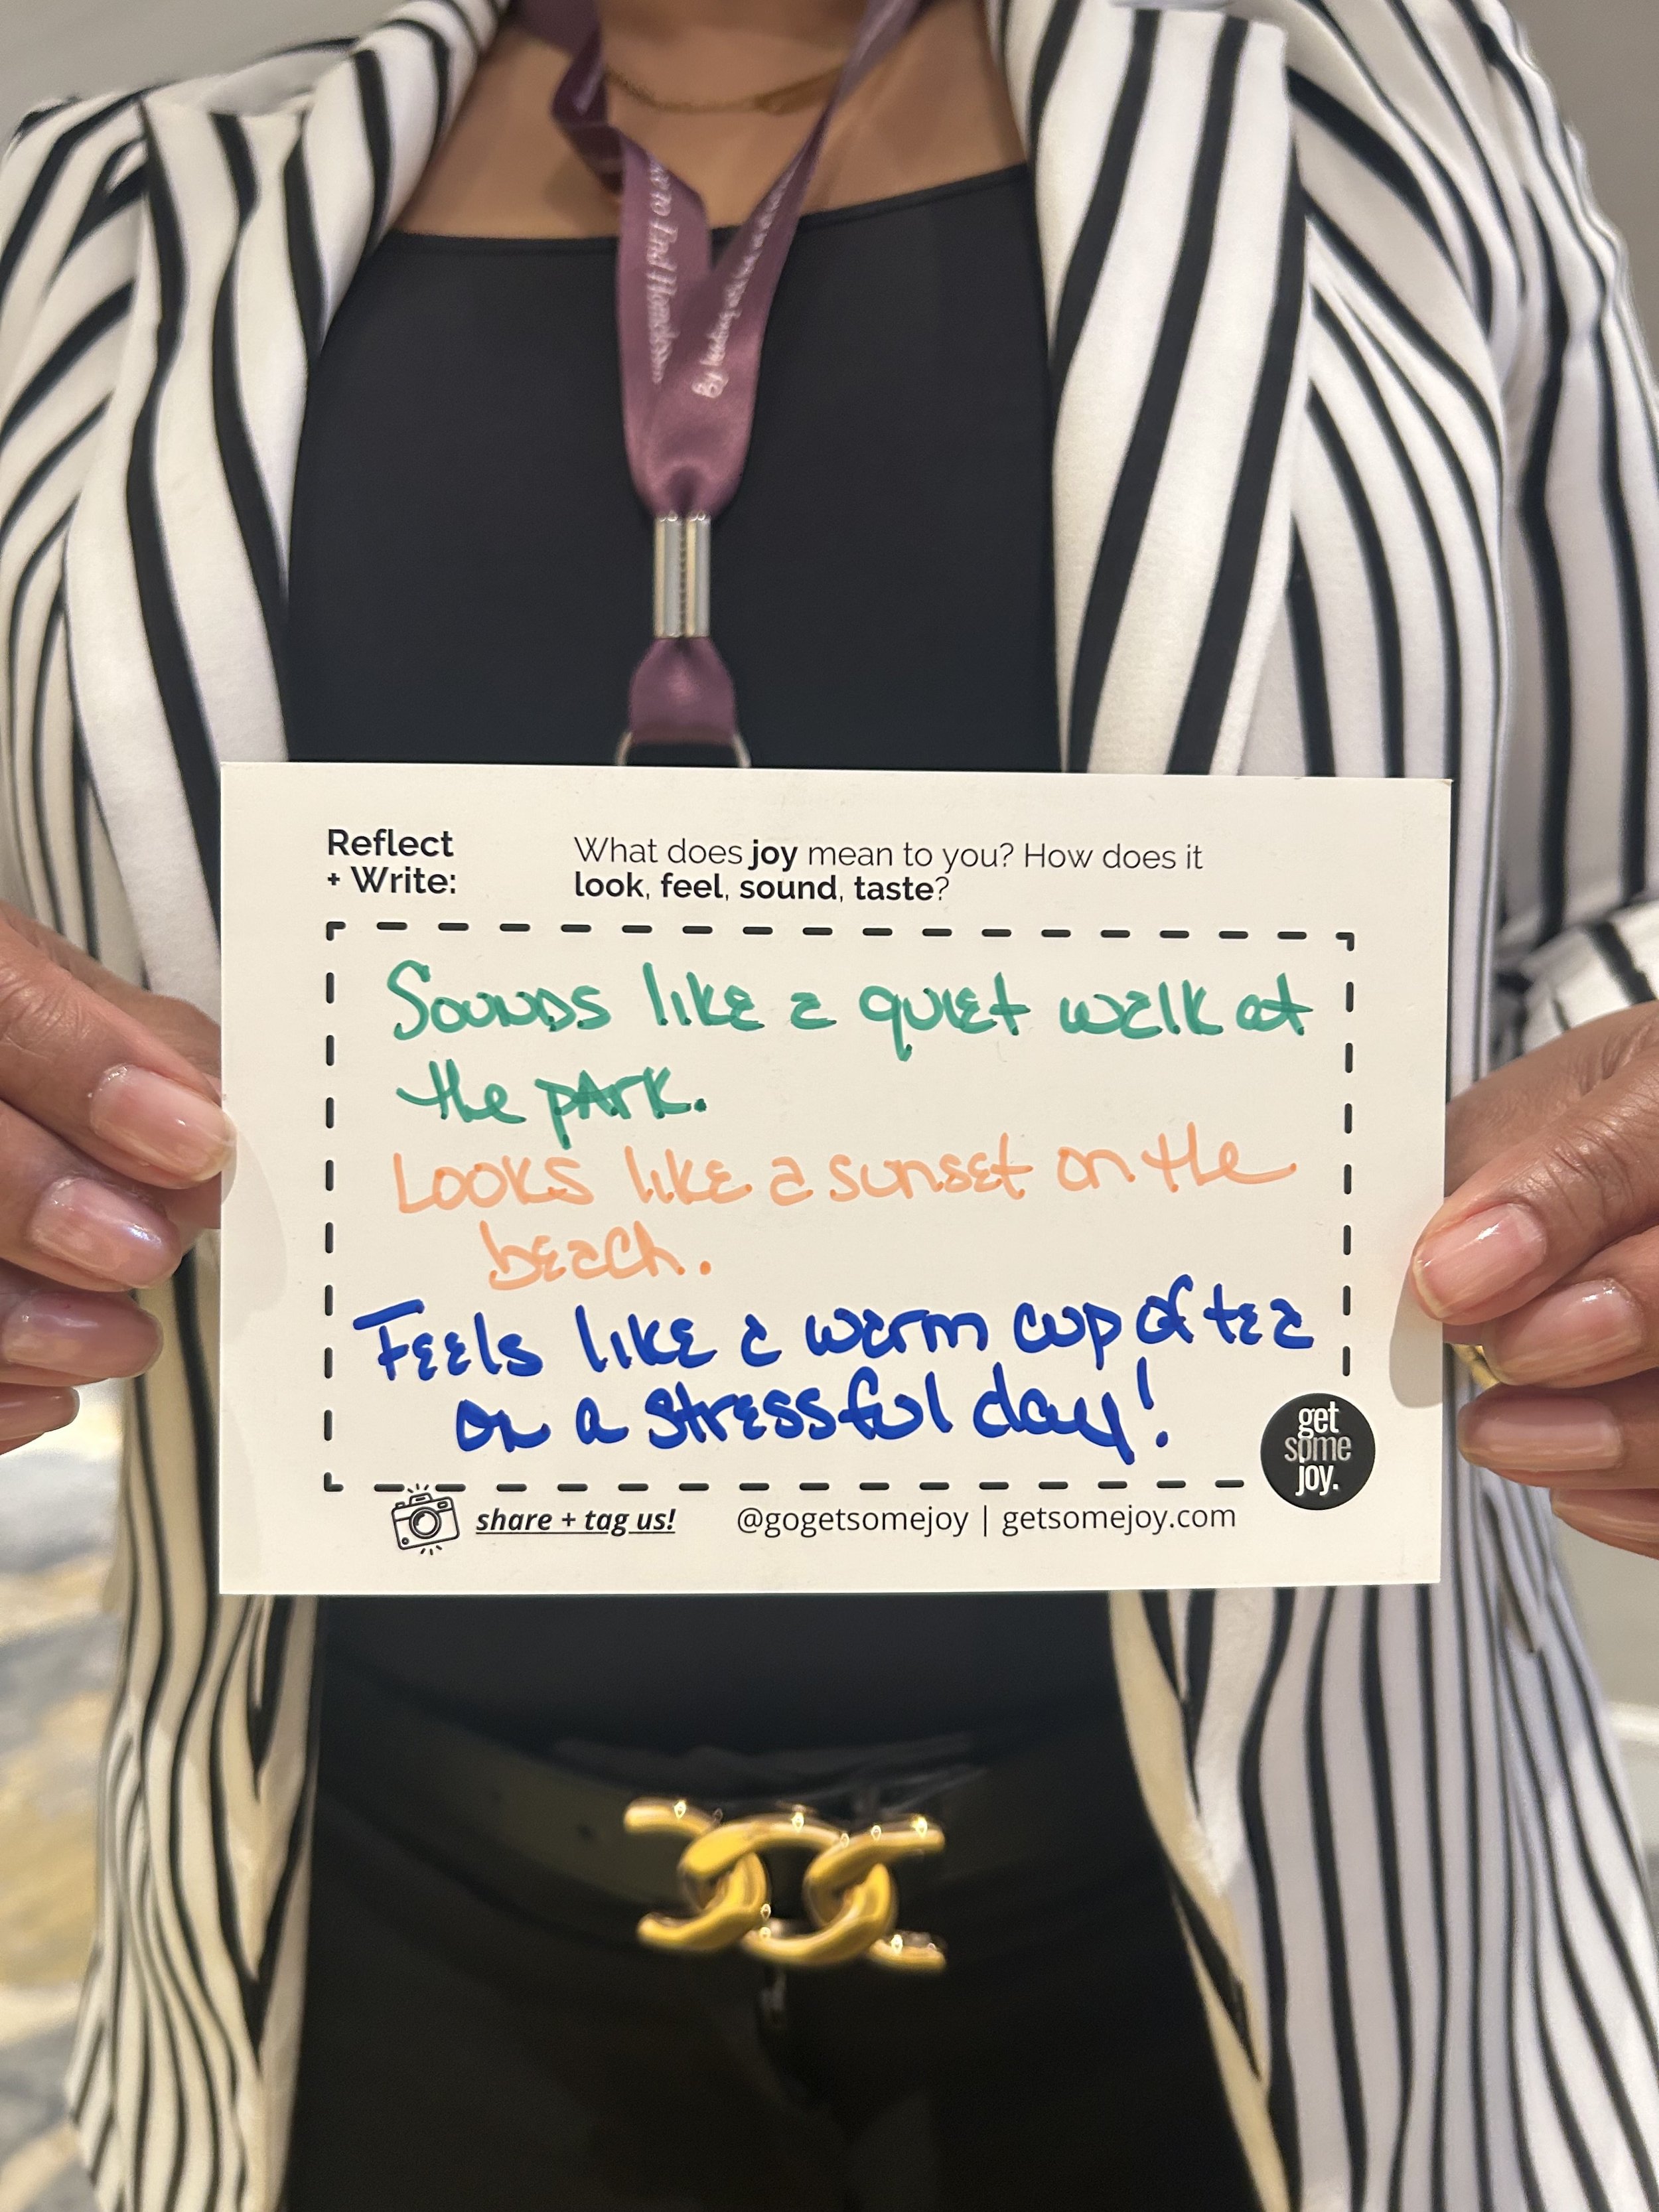 to End Homelessness
By leading the
Reflect
+ Write:
What does joy mean to you? How does it
look, feel, sound, taste?
Sounds like a quiet walk at
the park.
Looks like a sunset on the
beach.
Feels like a warm cup of tea
on a stressful day!
get
some
joy.
share + tag us!
@gogetsomejoy | getsomejoy.com